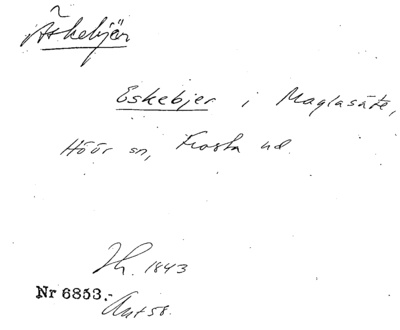 Äskebjär
Eskebjer i Maglasäte,
Höör sn, Frosta hd.
Th. 1843
Nr 6853.-
Ant 58.